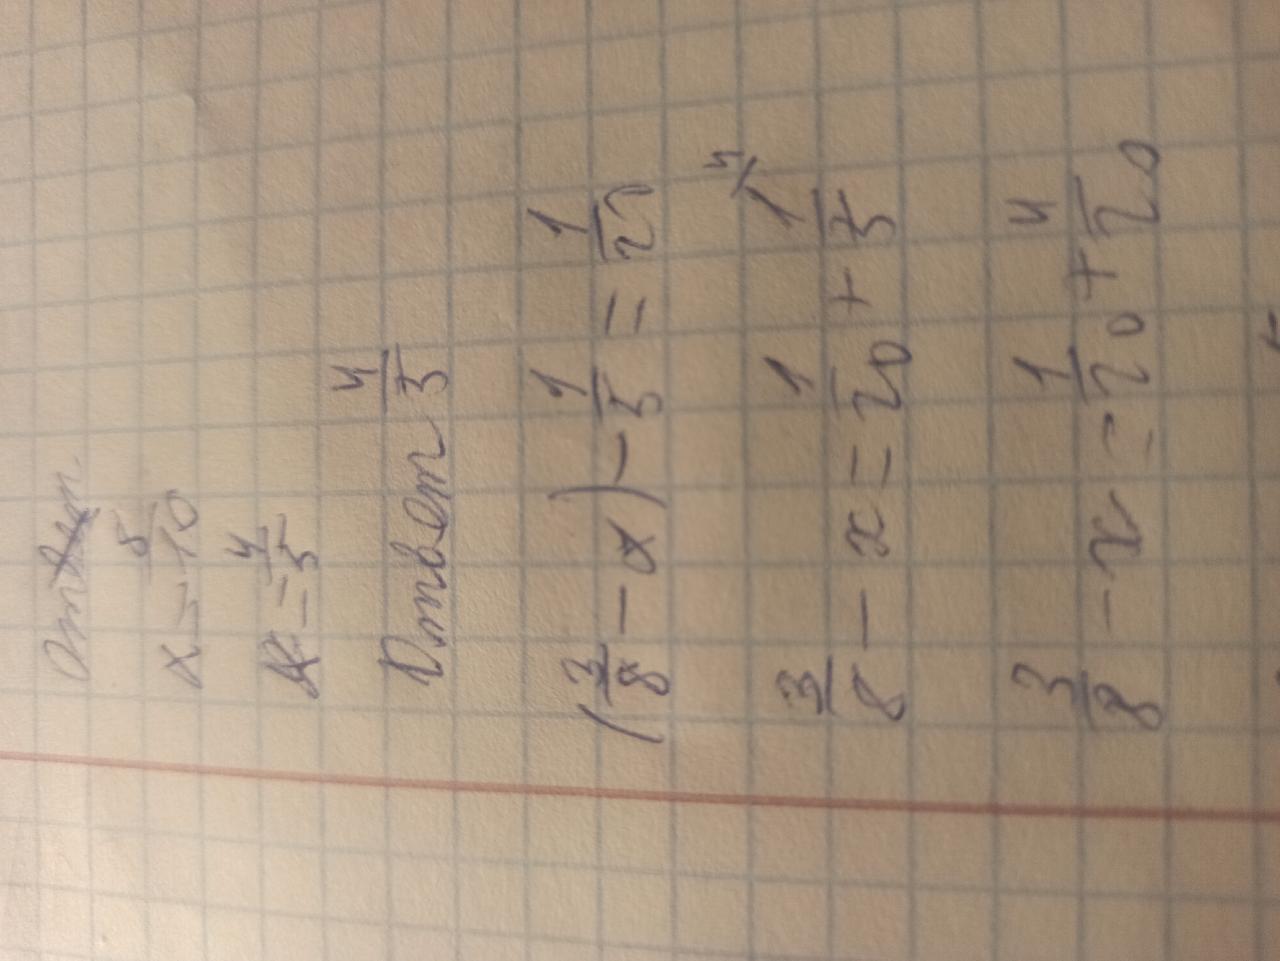 x = 8/10
x = 4/5
Ответ 4/5
(3/8 - x) - 1/5 = 1/20
3/8 - x = 1/20 + 1/5 4/
3/8 - x = 1/20 + 4/20